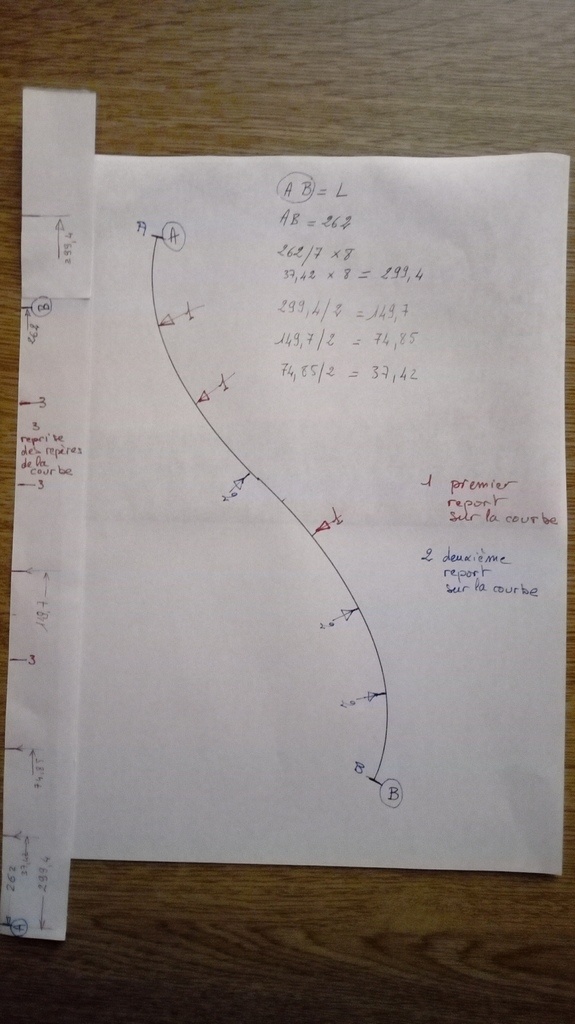 A B = L
AB = 262
262/7 × 8
37,42 × 8 = 299,4
299,4/2 = 149,7
149,7/2 = 74,85
74,85/2 = 37,42
A
A
1
1
2
1
2
2
B
B
1 premier
report
sur la courbe
2 deuxième
report
sur la courbe
299,4
B
262
3
3
reprise
des repères
de la
courbe
3
149,7
3
74,85
37,42
262
299,4
A